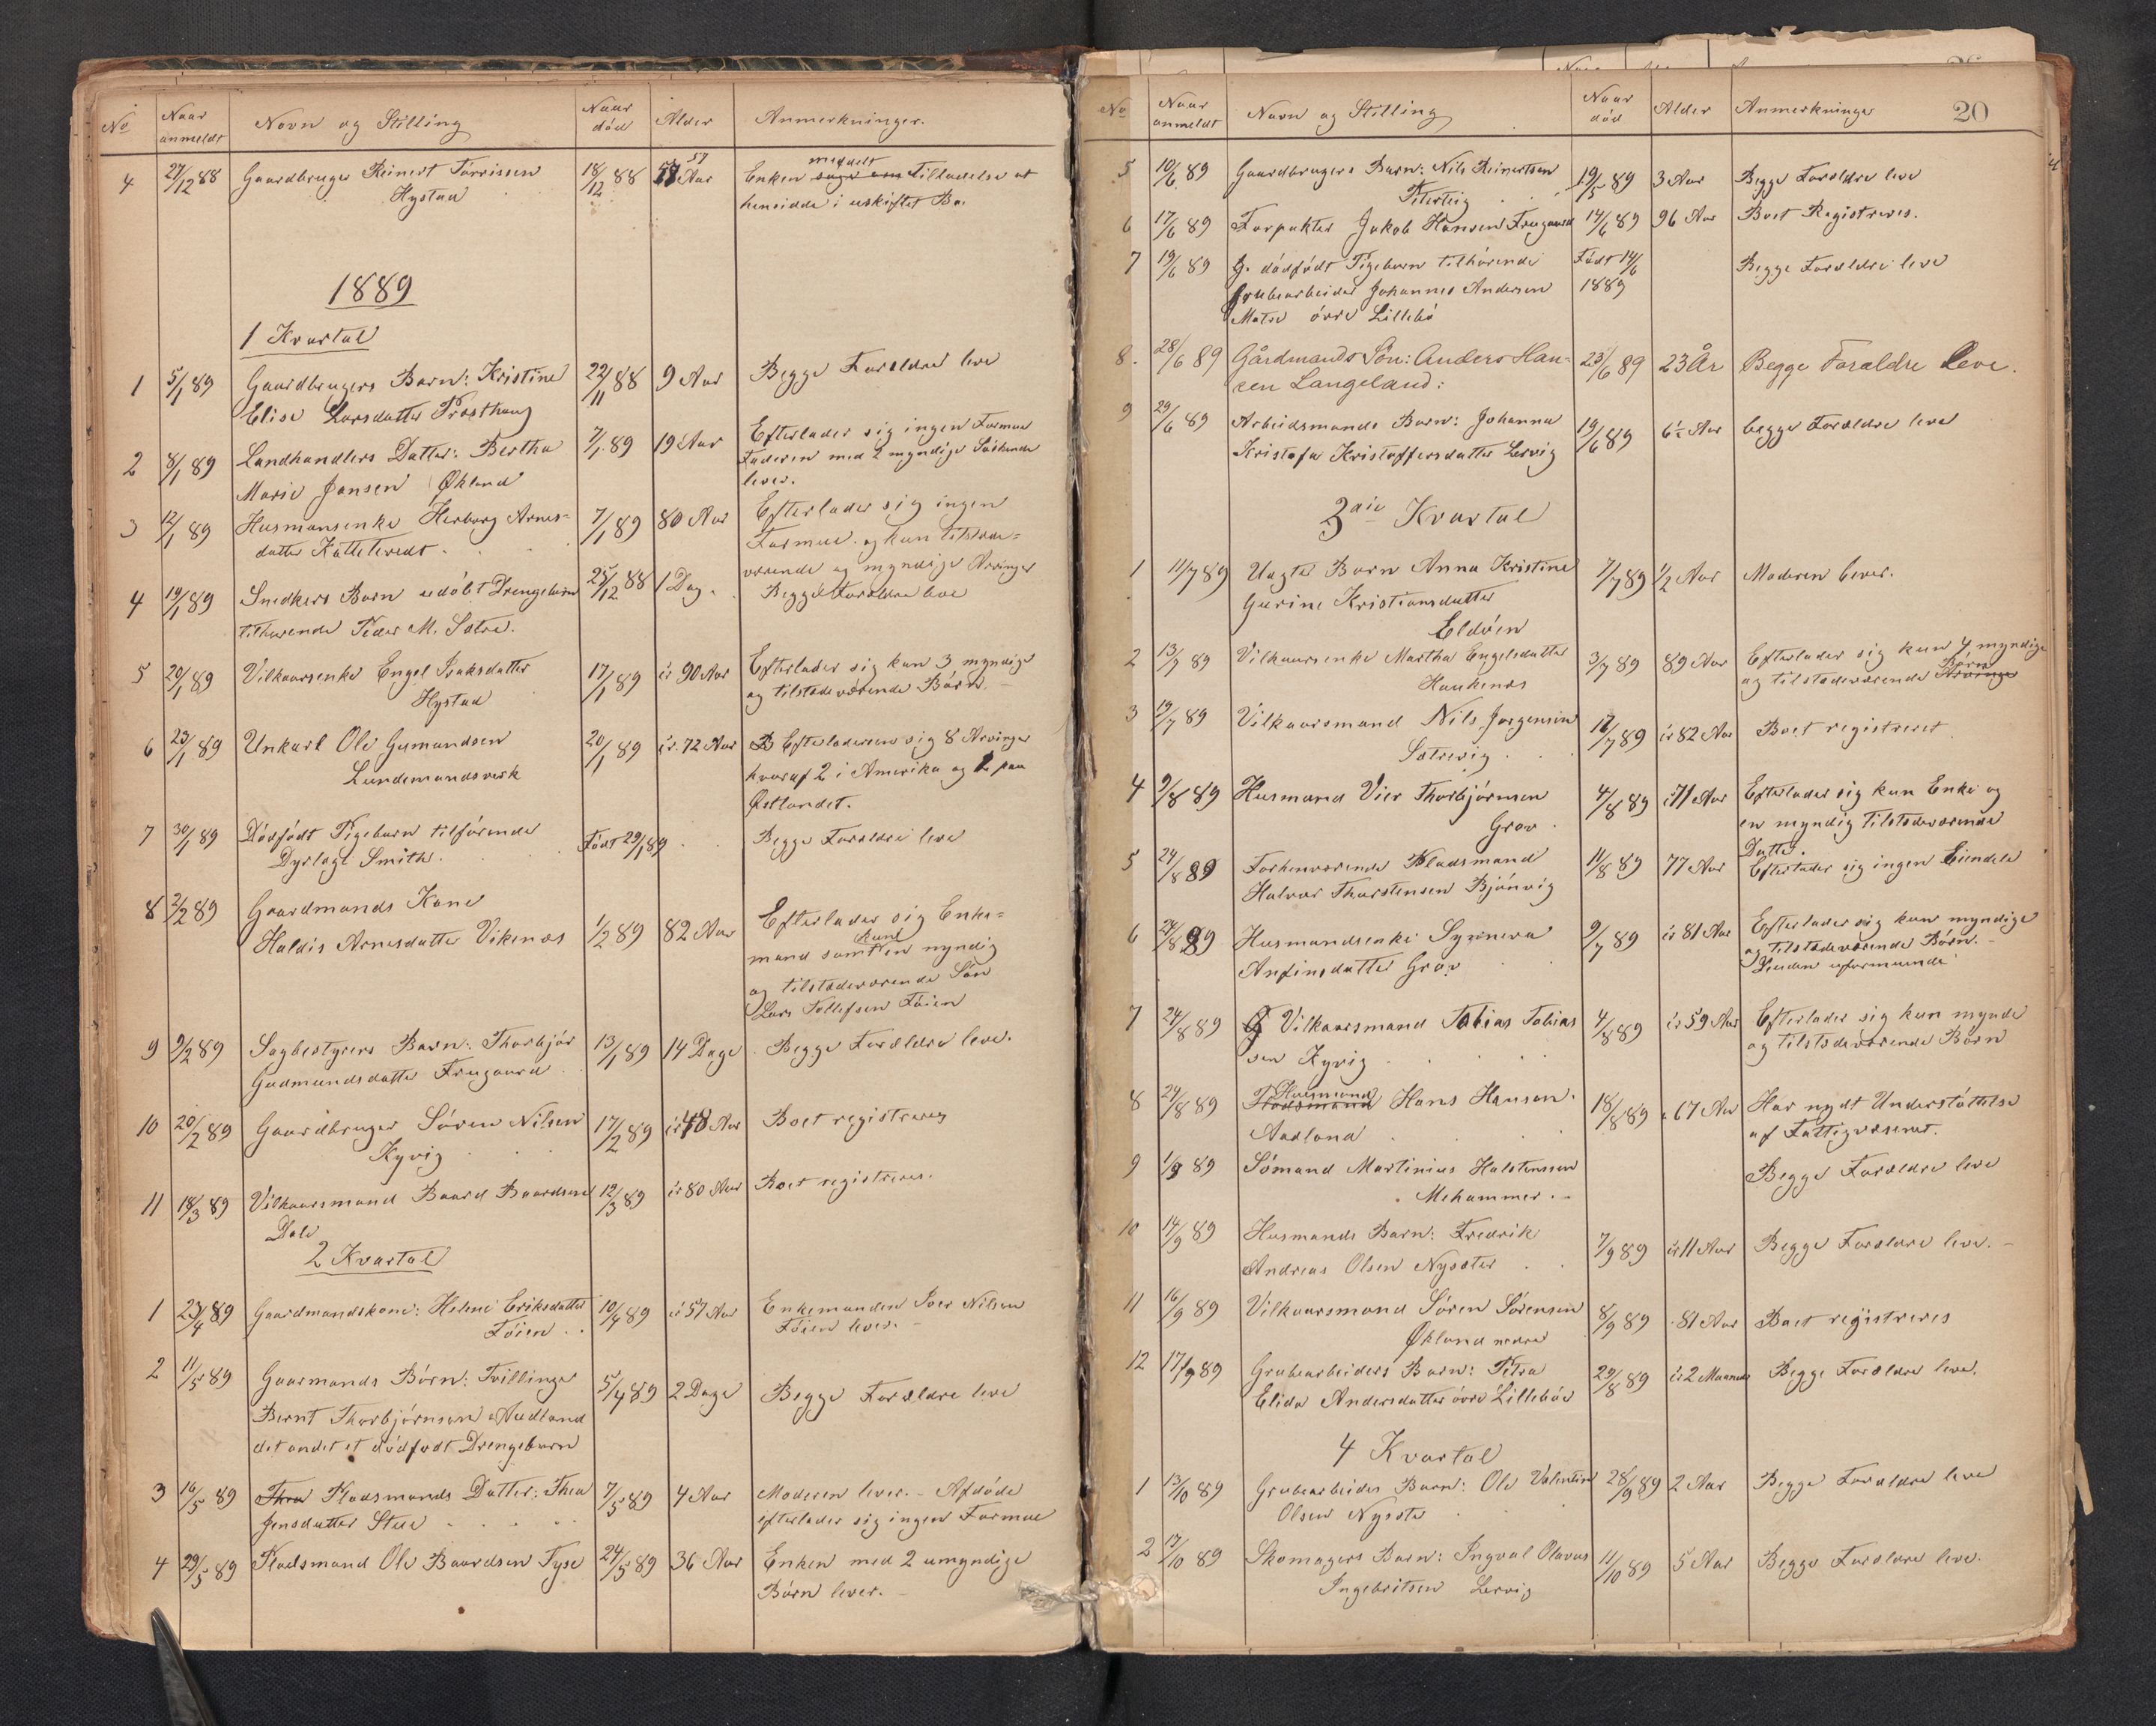 No Naar anmeldt Navn og Stilling Naar död Alder Anmerkninger.
4 27/12 88 Gaardbruger Reinert Torrissen 18/12 88 57 Aar Enken meddelt Tilladelse at
Hystad hensidde i uskiftet Bo.
1889
1 Kvartal
1 5/1 89 Gaardbrugers Barn: Kristine 22/11 88 9 Aar Begge Forældre leve
Elise Larsdatter Prosthaug
2 8/1 89 Landhandlers Datter: Bertha 7/1 89 19 Aar Efterlader sig ingen Formue
Marie Jansen Økland Faderen med 2 myndige Söskende
lever.
3 12/1 89 Husmansenke Herborg Arnes- 7/1 89 80 Aar Efterlader sig ingen
datter Kattetvedt. Formue. og kun tilstede-
værende og myndige Arvinger
4 19/1 89 Snedkers Barn udöbt Drengebarn 25/12 88 1 Dag. Begge Forældre leve
tilhørende Peder M. Sætre.
5 20/1 89 Vilkaarsenke Engel Isaksdatter 17/1 89 ir 90 Aar Efterlader sig kun 3 myndige
Hystad og tilstedeværende Börn.
6 23/1 89 Unkarl Ole Gumundsen 20/1 89 ir. 72 Aar Efterladersen sig 8 Arvinger
Lundemandsverk hvoraf 2 i Amerika og 2 paa
Østlandet.
7 30/1 89 Dödfödt Pigebarn tilhörende Födt 29/1 89 Begge Forældre leve
Dyrlæge Smith.
8 2/2 89 Gaardmands Kone
Haldis Arnesdatter Vikenæs 1/2 89 82 Aar Efterlader sig Enke-
mand samt kun en myndig
og tilstedeværende Sön
Lars Tollefsen Töien
9 9/2 89 Sagbestyrers Barn: Thorbjör 13/1 89 14 Dage Begge Forældre leve.
Gudmundsdatter Frugaard
10 20/2 89 Gaardbruger Sören Nilsen 17/2 89 ir 48 Aar Boet registreres
Kyvig
11 18/3 89 Vilkaarsmand Baard Baardsen 12/3 89 ir 80 Aar Boet registreres.
Dale
2 Kvartal
1 23/4 89 Gaardmandskone: Helene Eriksdatter 10/4 89 ir 57 Aar Enkemanden Iver Nilsen
Töien Töien lever.
2 11/5 89 Gaarmands Börn: Tvillinger 5/4 89 2 Dage Begge Forældre leve
Bernt Thorbjörnsen Aadland
det andet et dödfødt Drengebarn
3 16/5 89 Thea Pladsmands Datter: Thea 7/5 89 4 Aar Moderen lever. - Afdöde
Jensdatter Stue efterlader sig ingen Formue
4 29/5 89 Pladsmand Ole Baardsen Tyse 24/5 89 36 Aar Enken med 2 umyndige
Börn lever.
20
No Naar anmeldt Navn og Stilling Naar död Alder Anmerkninger
5 10/6 89 Gaardbrugers Barn: Nils Reinertsen 19/5 89 3 Aar Begge Forældre leve
Petersteig
6 17/6 89 Forpakter Jakob Hansen Frugaard 14/6 89 96 Aar Boet Registreres.
7 19/6 89 G. dödfödt Pigebarn tilhörende Födt 14/6 Begge Forældre leve
Grubearbeider Johannes Andersen 1889
Matre övre Lillebö
8. 28/6 89 Gårdmands Sön: Anders Han- 23/6 89 23 År Begge Forældre Leve.
sen Langeland:
9 29/6 89 Arbeidsmands Barn: Johanna 19/6 89 6½ Aar begge Forældre leve
Kristofa Kristoffersdatter Lervig
3die Kvartal
1 11/7 89 Uægte Barn Anna Kristine 7/7 89 ½ Aar Moderen lever.
Gurine Kristiansdatter
Eldöen
2 13/7 89 Vilkaarsenke Martha Engelsdatter 3/7 89 89 Aar Efterlader sig kun 4 myndige
Haukenæs og tilstedeværende Arvinger Börn
3 19/7 89 Vilkaarsmand Nils Jorgensen 16/7 89 ir 82 Aar Boet registreret
Sætrevig
4 9/8 89 Husmand Vier Thorbjörnsen 4/8 89 71 Aar Efterlader sig kun Enke og
Grov. en myndig tilstedeværende
Datter.
5 24/8 89 Forhenværende Pladsmand 11/8 89 77 Aar Efterlader sig ingen Eiendele
Halvor Thorstensen Bjönvig
6 24/8 89 Husmandsenke Synneva 9/7 89 ir 81 Aar Efterlader sig kun myndige
Anfinsdatter Grov og tilstedeværende Börn.
uformuende
7 24/8 89 Vilkaarsmand Tobias Tobias 4/8 89 ir 59 Aar Efterlader sig kun mynde
sen Kyvig og tilstedeværende Börn
8 24/8 89 Pladsmand Husmand Hans Hansen. 18/8 89 67 Aar Har nydt Understöttelse
Aadland af Fattigvæsenet.
9 1/9 89 Sömand Martinius Halstenssen Begge Forældre leve
Mehammer.
10 14/9 89 Husmands Barn: Fredrik 7/9 89 ir 11 Aar Begge Forældre leve.
Andreas Olsen Nysæter
11 16/9 89 Vilkaarsmand Sören Sörensen 8/9 89 81 Aar Boet registreres
Økland nedre
12 17/9 89 Grubearbeiders Barn: Petra 29/8 89 ir 2 Maaneder Begge Forældre leve.
Elida Andersdatter övre Lillebö
4 Kvartal
1 13/10 89 Grubearbeider Barn: Ole Valentin 28/9 89 2 Aar Begge Forældre leve
Olsen Nysæter
2 17/10 89 Skomagers Barn: Ingval Olavus 11/10 89 5 Aar Begge Forældre leve.
Ingebritsen Lervig